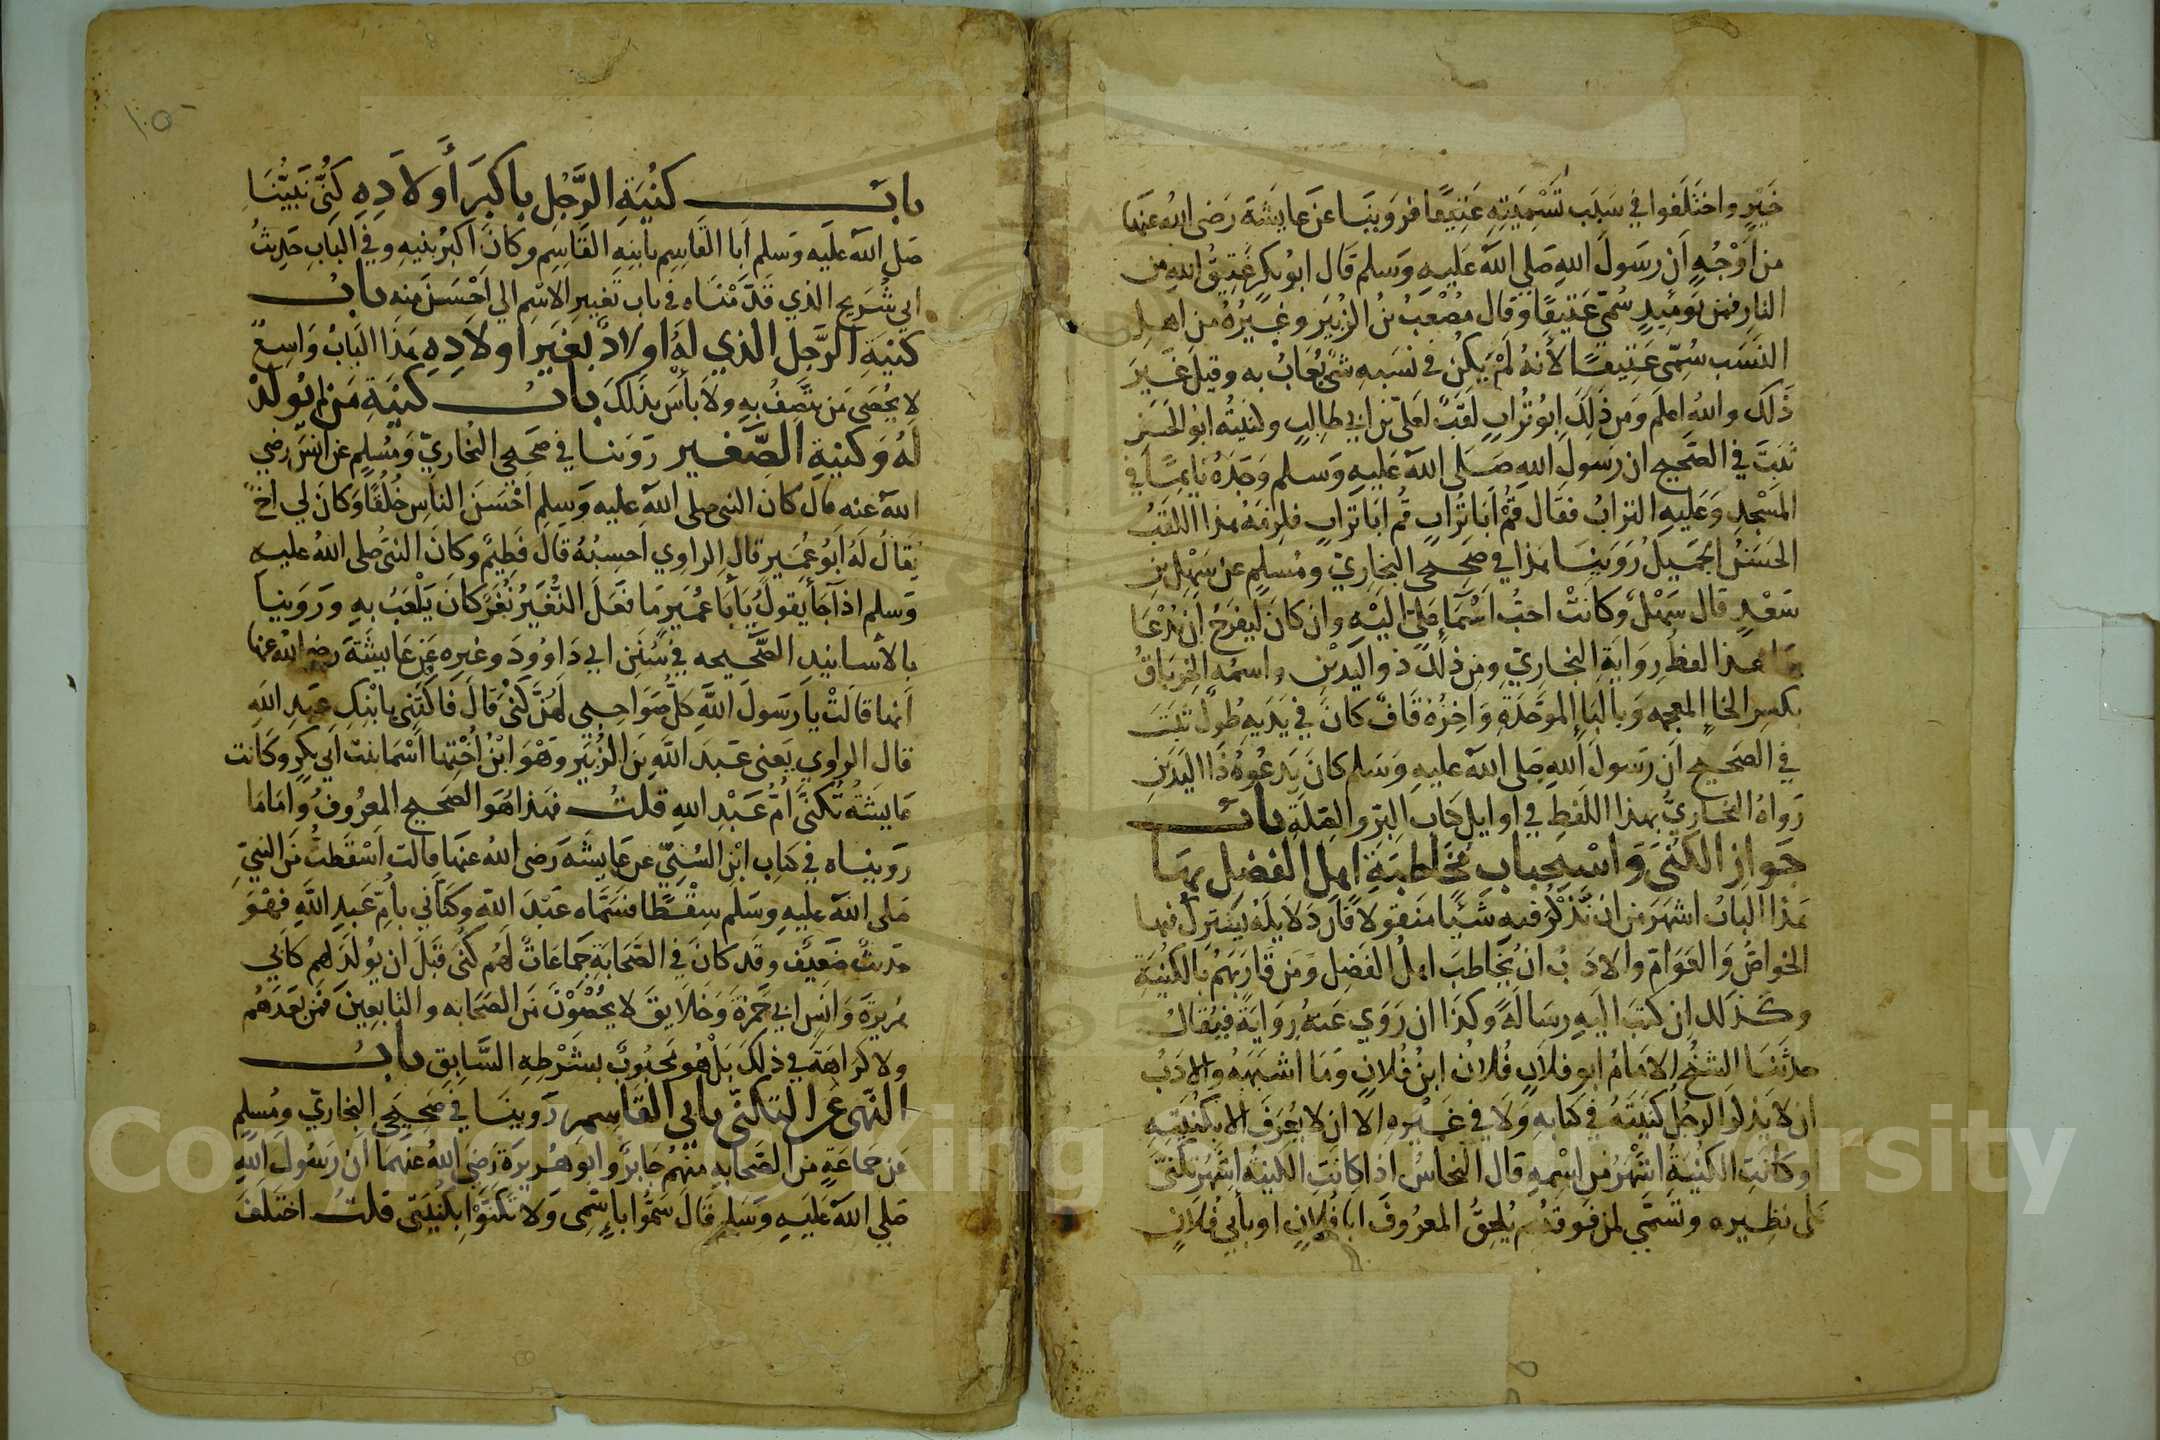 خَيْرٍ واختلفوا في سبب تسميته عتيقا فروينا عن عايشة رضى الله عنها
من أوجُهٍ أن رسول الله صلي الله عليه وسلم قال ابو بكر عتيق الله من
النار فمن يوميذٍ سُمّي عتيقًا وقال مصعب بن الزبير وغيرُهُ من اهل
النسب سُمّى عتيقًا لأنهُ لم يكن في نسبه شي يُعابُ به وقيل غير
ذلك والله اعلم ومن ذلك ابو تُرابٍ لقبٌ لعلي بن ابي طالب وكنيتُه ابو الحسن
ثبت في الصحيح ان رسول الله صلى الله عليه وسلم وجدهُ نايمًا في
المسجد وعليه التراب فقال قُم أبا ترابٍ قم أبا ترابٍ فلزمهُ هذا اللقبُ
الحسنُ الجميل رُوينا هذا في صحيحي البخاري ومُسلمٍ عن سهل بن
سعدٍ قال سهلٌ وكانت احبُّ أسمآءِ عليّ اليه وان كان ليفرحُ أن يُدعا
بها هذا لفظُ رواية البخاري ومن ذلك ذو اليدين واسمه الخرباقُ
بكسر الخاء المعجمه وبالباء الموحدة وآخره قافٌ كان في يديه طولٌ ثبت
في الصحيح أن رسول الله صلى الله عليه وسلم كان يدعوهُ ذا اليدين
رواهُ البخاريُّ بهذا اللفظ في اوايل كتاب البرّ والصلة باب
جواز الكنى واستحباب مخاطبة اهل الفضل بها
هذا البابُ اشهر من ان نذكر فيه شيًا منقولًا فان دلايله يشترك فيها
الخواصُّ والعوامّ والادب ان يخاطب اهلُ الفضل ومن قاربهم بالكنية
وكذلك إن كتب اليه رسالةً وكذا ان روي عنه روايةً فيقال
حدثنا الشيخ الامامُ ابو فلان فُلان ابنُ فُلانٍ وما اشبهه والادب
ان لا يذكر الرجل كنيته في كتابه ولا في غيره الا ان لا يعرف الا بكنيته
او كانت الكنيةُ اشهر من اسمه قال النحاس اذا كانت الكنية اشهر تكنّى
على نظيره وتسمّى لمن فوقه ثم يُلحق المعروف ابا فُلانٍ او بأبي فُلانٍ
١٥٠
باب كنية الرَّجُل باكبر أولاده كُنّى نبيّنا
صلى الله عليه وسلم أبا القاسم بابنه القاسم وكان اكبر بنيه وفي الباب حديثُ
ابي شُريح الذي قدّمناه في باب تغيير الاسم الي احسن منه باب
كنية الرجل الذي له أولادٌ بغير أولاده هذا الباب واسعٌ
لا يُحصى من يتّصفُ به ولا بأس بذلك باب كنية من لم يُولد
لهُ وكنية الصّغير روينا في صحيحي البخاريّ ومُسلم عن انس رضي
الله عنه قال كان النبي صلى الله عليه وسلم أحسن الناس خُلقًا وكان لي اخٌ
يقالُ لهُ ابو عُميرٍ قال الراوي احسبُهُ قال فطيمٌ وكان النبي صلى الله عليه
وسلم اذا جآء يقولُ يا أبا عميرٍ ما فعل النُّغيرُ نُغرٌ كان يلعبُ به وروينا
بالأسانيد الصّحيحه في سُنن ابي داوود وغيره عن عايشة رضى الله عنها
أنها قالت يا رسول الله كلُّ صواحبي لهُنّ كُنًى قال فاكتني بابنك عبد الله
قال الراوي يعنى عبد الله بن الزبير وهو ابنُ أختها أسما بنت ابي بكر وكانت
عايشةُ تُكنّى أمّ عبد الله قلتُ فهذا هو الصحيح المعروفُ واما ما
رويناه في كتاب ابن السُّنّيّ عن عايشة رضى الله عنها قالت أسقطتُ من النبيّ
صلى الله عليه وسلم سِقطًا فسمّاه عبد الله وكنّاني بأمّ عبد الله فهو
حديث ضعيف وقد كان في الصحابة جماعاتٌ لهم كُنى قبل ان يُولد لهم كابي
هريرة وأنس ابي حمزة وخلايق لا يُحصون من الصحابه والتابعين فمن بعدهم
ولا كراهة في ذلك بل هو محبوبٌ بشرطه السّابق باب
النّهي عن التكنّى بابي القاسم روينا في صحيحي البخاريّ ومُسلم
عن جماعةٍ من الصّحابه منهم جابرٌ وابو هُريرة رضي الله عنهما أن رسول الله
صلي الله عليه وسلم قال سمّوا باسمى ولا تكنّوا بكنيتى قلت اختلف